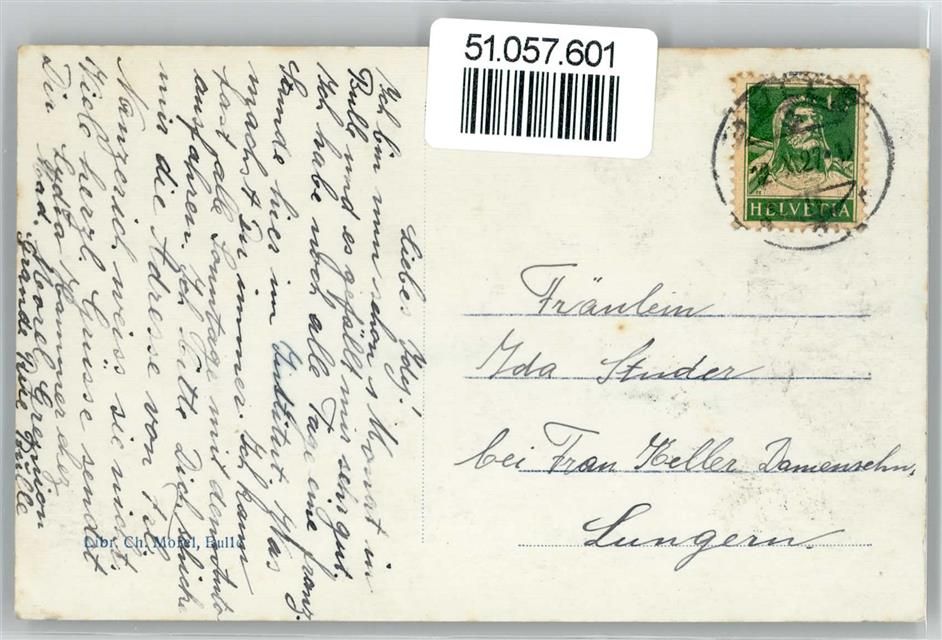 51.057.601
HELVETIA
27
Liebes Idy!
Ich bin nun schon 1 Monat in
Bulle und es gefällt mir sehr gut.
Ich habe noch alle Tage eine franz.
Stunde hier im Institut. Was
machst Du immer. Ich kann
fast alle Sonntage mit dem Auto
ausfahren. Ich bitte Dich schicke
mir die Adresse von
weiss sie nicht.
Viele herzl. Grüsse sendet
Dir Lydia Hammer chez
Mad. Morel Gremion
Grande Rue Bulle
Libr. Ch. Morel, Bulle
Fräulein
Ida Studer
bei Frau Keller Damenschn.
Lungern.